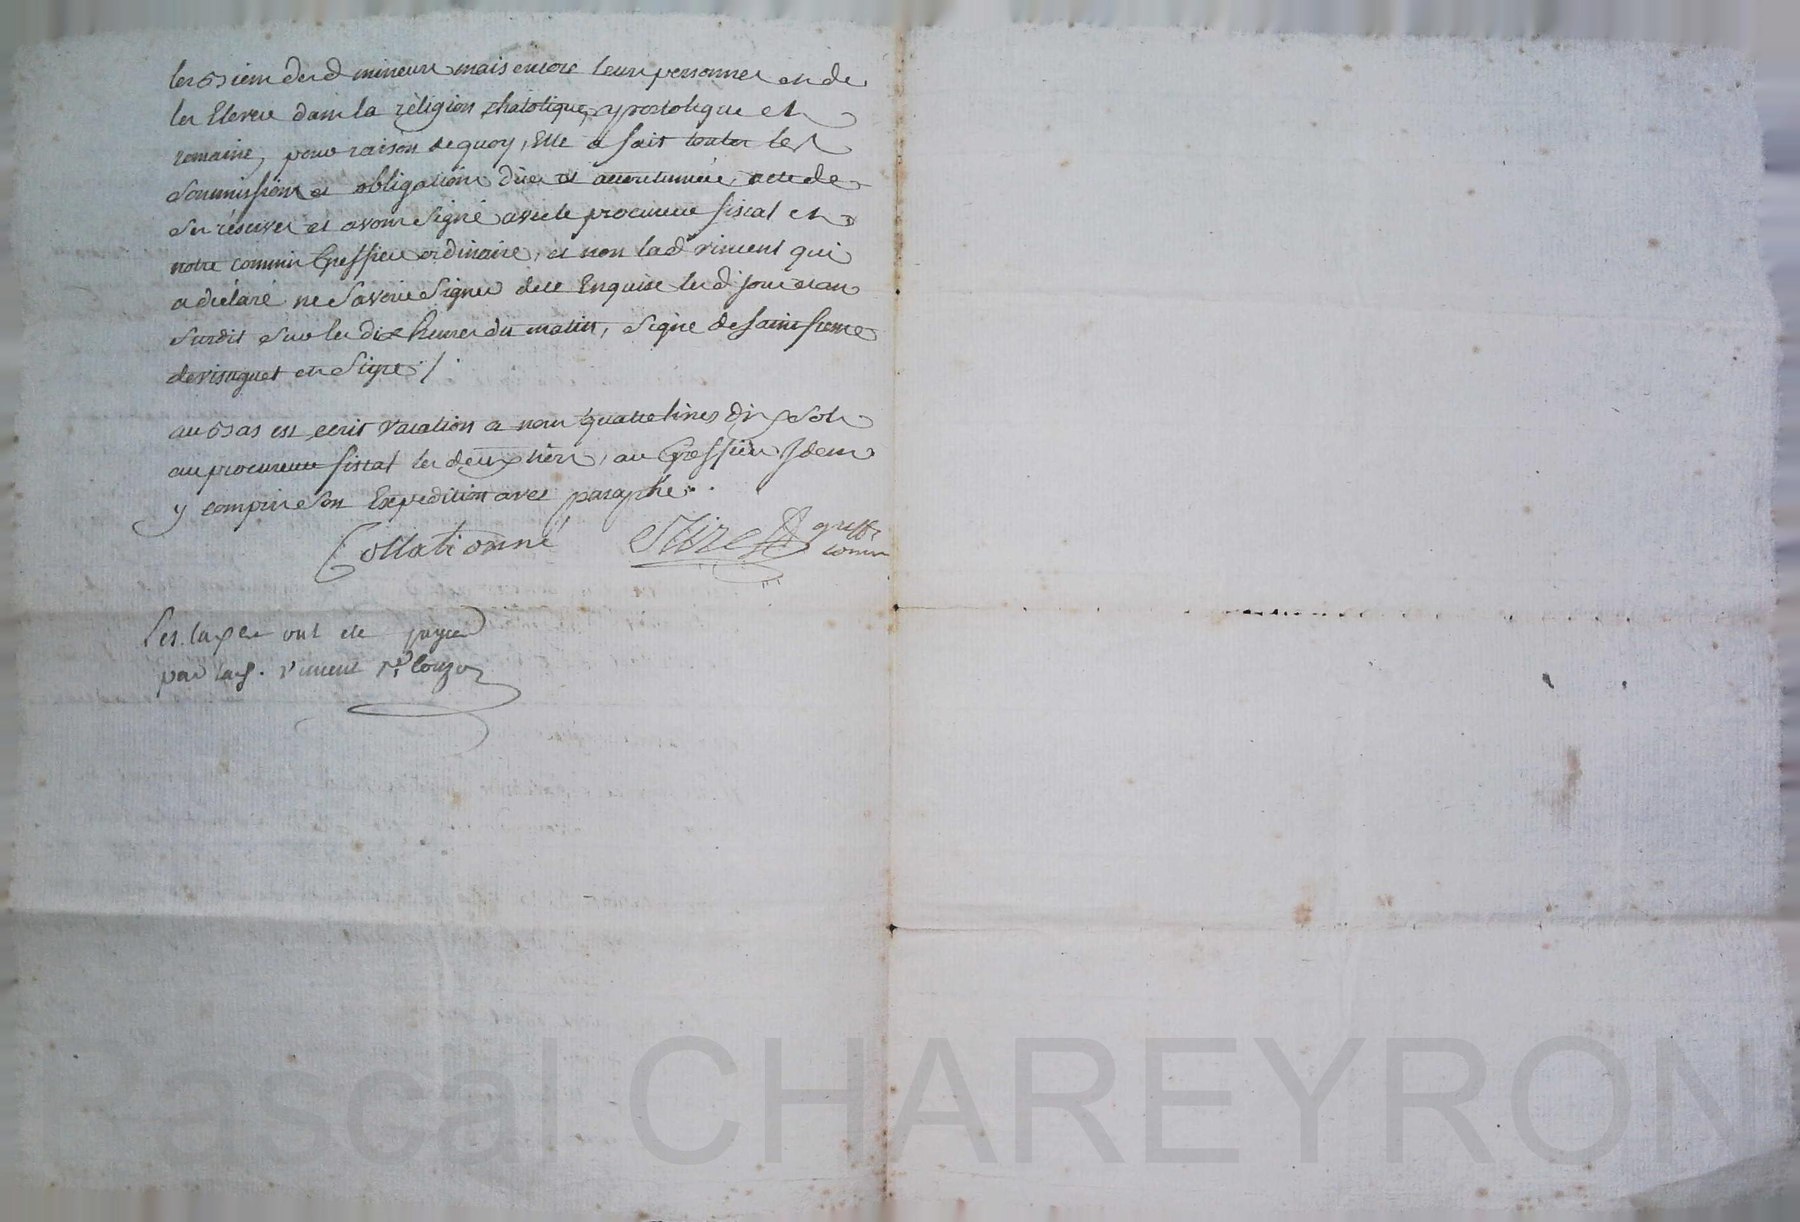 les Biens desd mineurs mais encore leurs personnes et de
les Elever dans la religion chatolique, apostolique et
romaine, pour raison de quoy, Elle a fait toutes les
Soummissions et obligations dües et accoutumées, acte de
Ses réserves et avons Signé avec le procureur fiscal et
notre commis Greffier ordinaire, et non lad vincent qui
a déclaré ne Savoir Signer de ce Enquise lesd jour et an
Surdit Sur les dix heures du matin, Signé de
et Signé /.
au Bas est ecrit vacations a nous quatre livres dix Sols
au procureur fiscal les deux tiers, au Greffier Idem
y compris Son Expedition avec paraphe.
Collationné greffr
comis
Les taxes ont ete payees
par lad. vincent
Pascal CHAREYRON